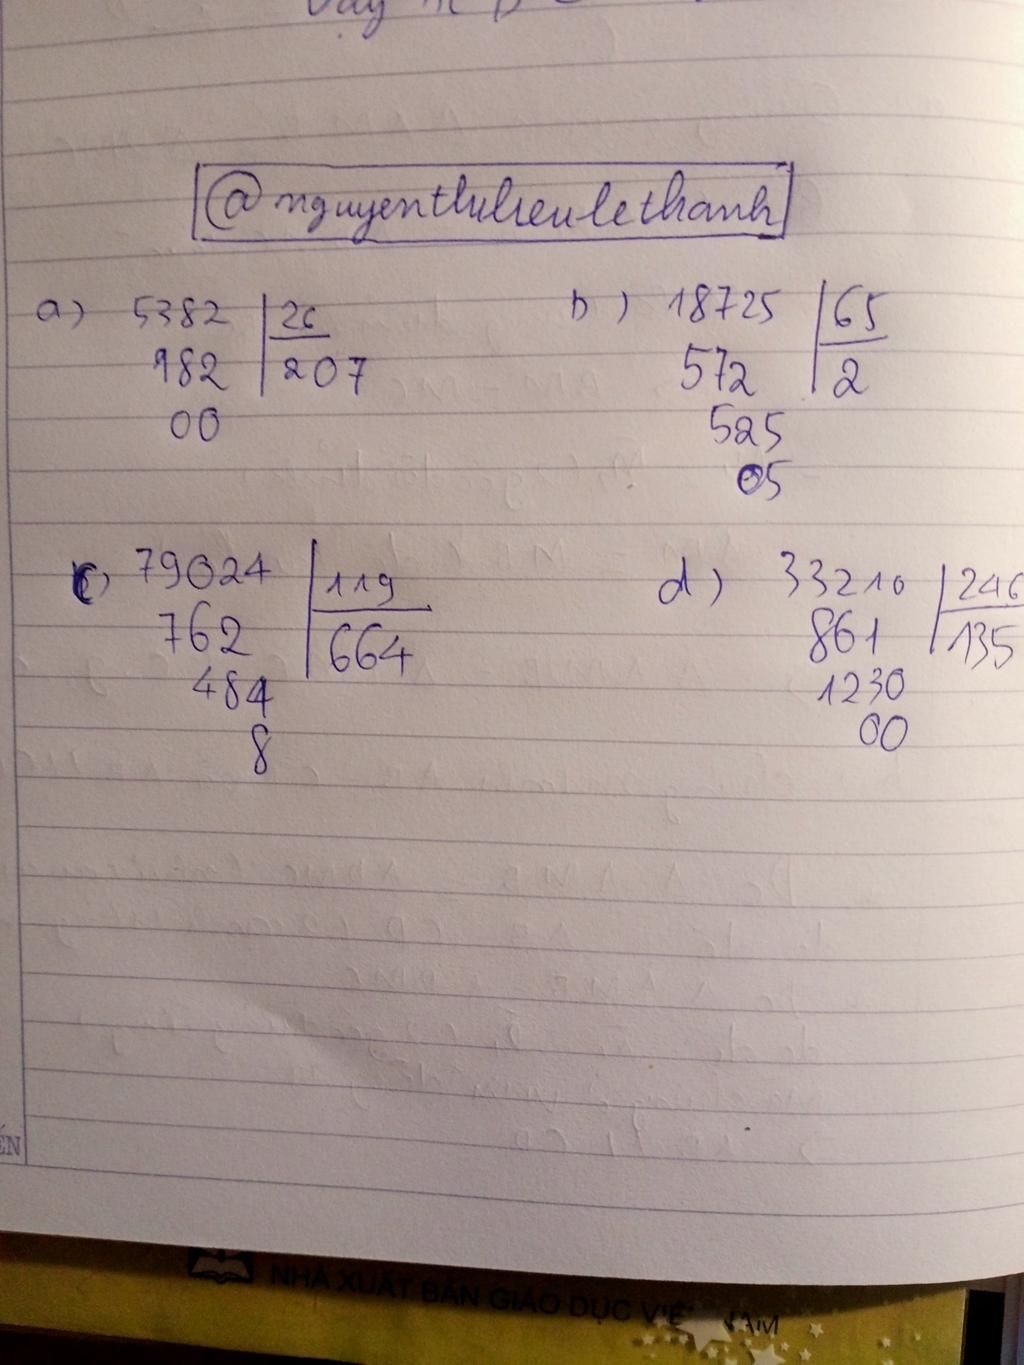 @nguyenthulieulethanh
a) 5382 26
182 207
00
b) 18725 65
572 2
525
05
c) 79024 119
762 664
484
8
d) 33210 246
861 135
1230
00
NHÀ XUẤT BẢN GIÁO DỤC VIỆ NAM